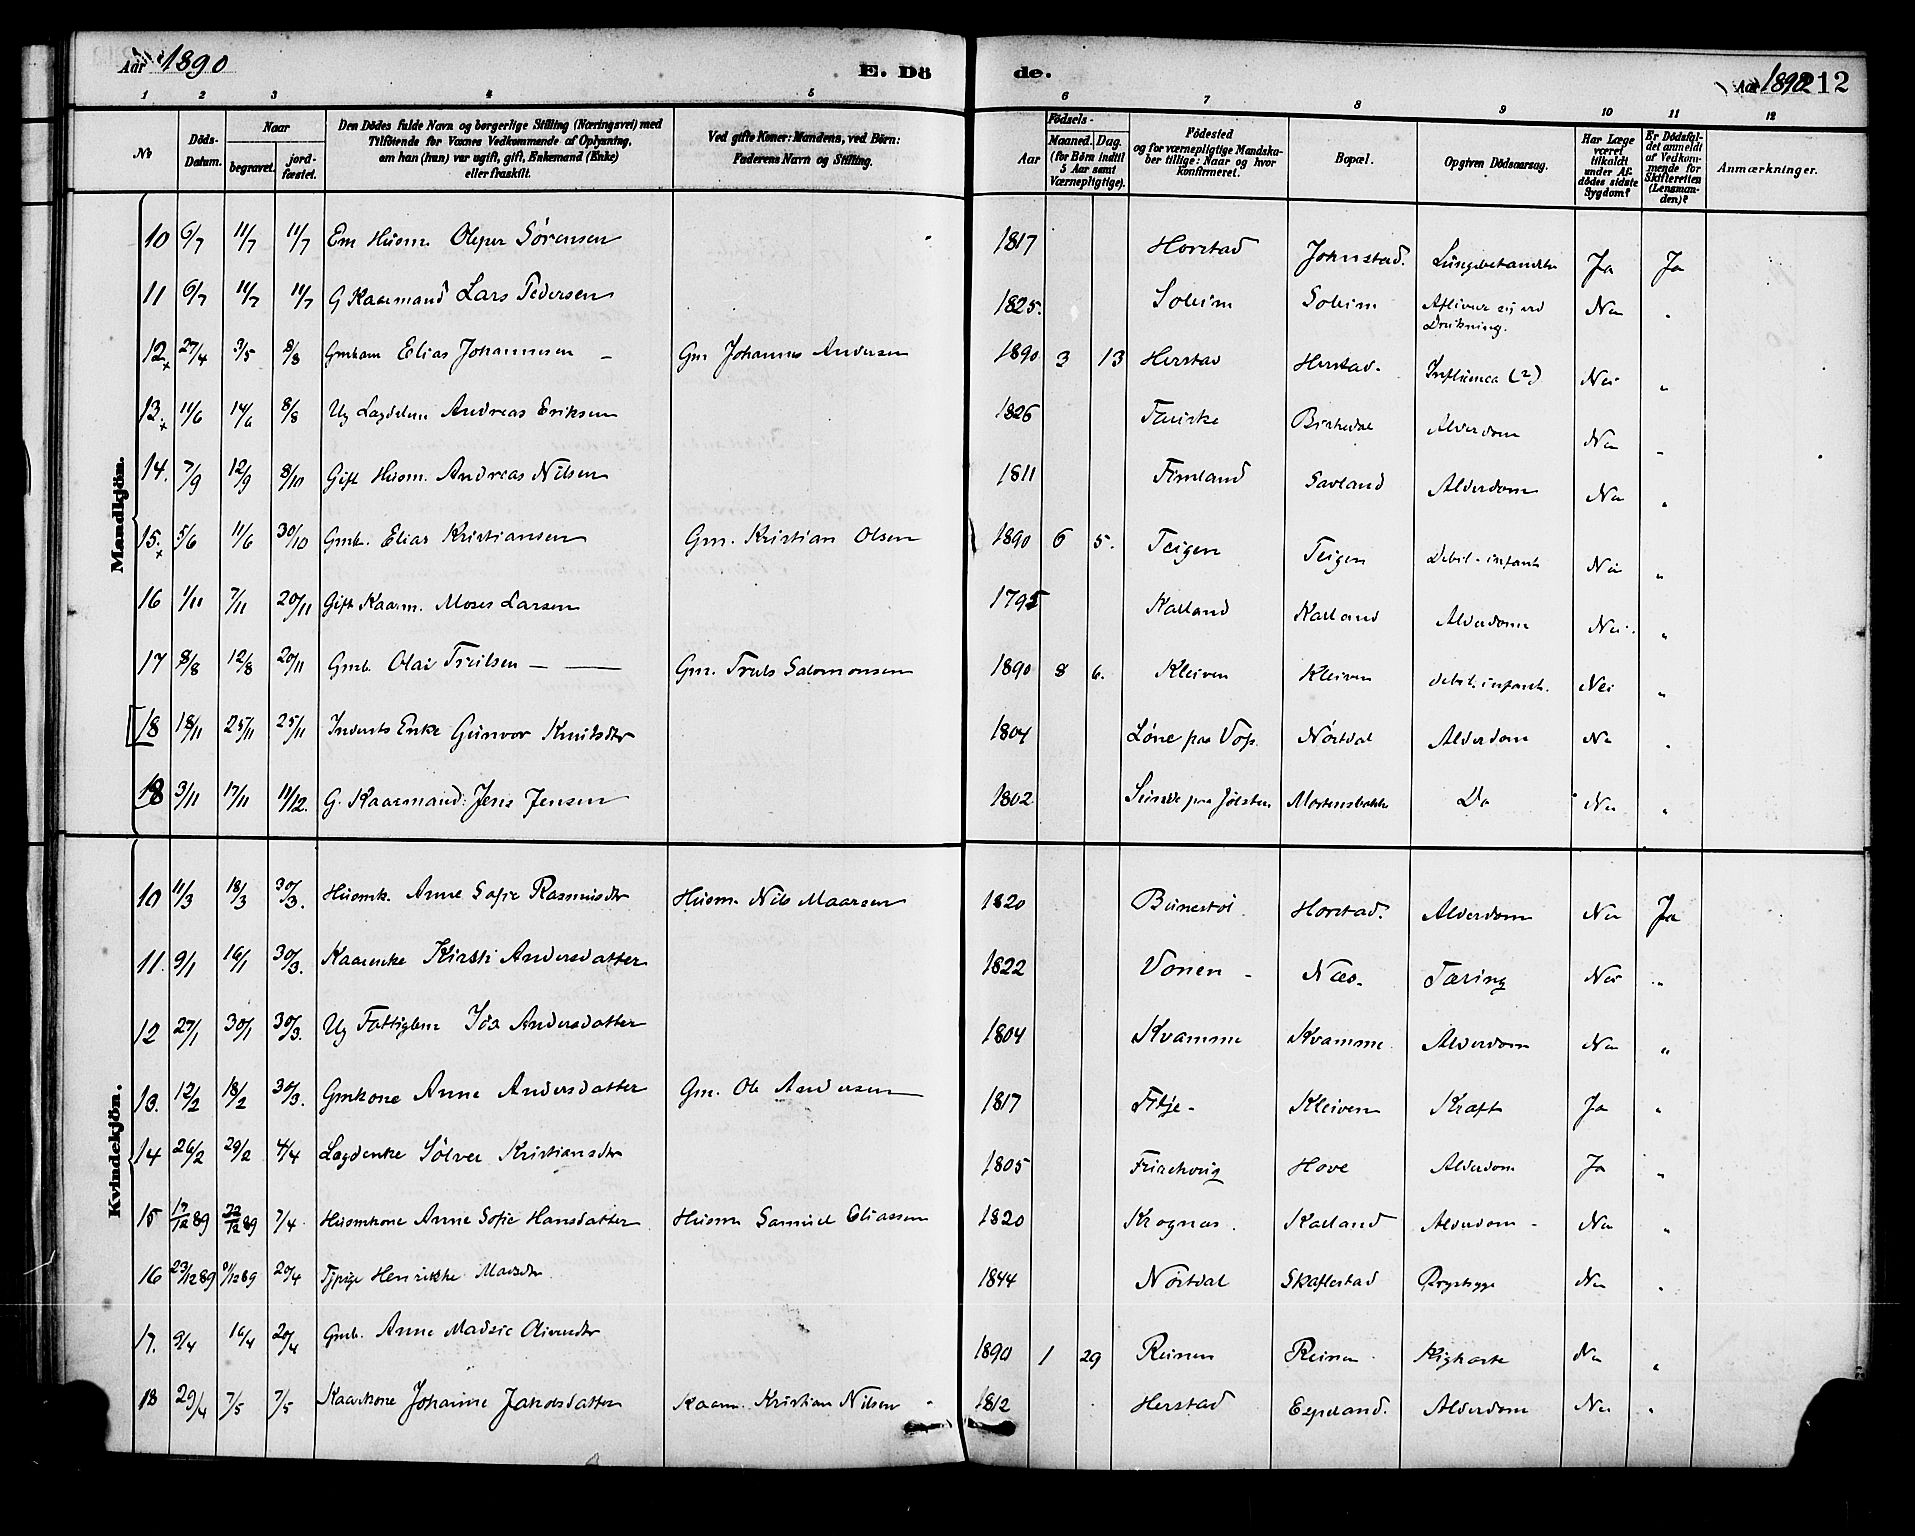 Aar 1890
E. Dö
de.
Aar 1890 212
1 2 3 4 5 6 7 8 9 10 11 12
No
Döds-Datum.
Naar
begravet.
jord-fæstet.
Den Dödes fulde Navn og borgerlige Stilling (Næringsvei) med
Tilföiende for Voxnes Vedkommende af Oplysning,
om han (hun) var ugift, gift, Enkemand (Enke)
eller fraskilt.
Ved gifte Koner: Mandens, ved Börn:
Faderens Navn og Stilling.
Födsels-
Aar
Maaned. Dag.
(for Börn indtil
5 Aar samt
Værnepligtige).
Födested
og for værnepligtige Mandska-
ber tillige: Naar og hvor
konfirmeret.
Bopæl.
Opgiven Dödsaarsag.
Har Læge
været
tilkaldt
under Af-
dödes sidste
Sygdom?
Er Dödsfal-
det anmeldt
af Vedkom-
mende for
Skifteretten
(Lensman-
den)?
Anmærkninger.
Mandkjön.
10 6/7 11/7 11/7 Em Husm. Olaper Sörensen 1817 Horstad Johnstad. Lungebetændelse Ja Ja
11 6/7 11/7 11/7 G Kaarmand Lars Pedersen 1825. Soleim Soleim Aflivede sig ved Drukning. Nei "
12 x 27/4 3/5 8/8 Gmbarn Elias Johannesen Gm Johannes Andersen 1890 3 13 Herstad Herstad. Influenca (?) Nei "
13. x 11/6 14/6 8/8 Ug Lægdslem Andreas Eriksen 1826 Birkedal Alderdom Nei "
14. 7/9 12/9 8/10 Gift Husm. Andreas Nilsen 1811 Fimland Savland Alderdom Nei "
15. x 5/6 11/6 30/10 Gmb. Elias Kristiansen Gm. Kristian Olsen 1890 6 5. Teigen Teigen Debil. infant. Nei "
16 1/11 7/11 20/11 Gift Kaarm. Moses Larsen 1795 Kalland Kalland Alderdom Nei. "
17 8/8 12/8 20/11 Gmb. Olai Trulsen Gm. Truls Salomonsen 1890 8 6. Kleiven Kleiven debil. infant. Nei "
18 18/11 25/11 25/11 Inderts Enke Gunvor Knutsdtr 1804 Løne paa Vos. Nörtdal Alderdom Nei "
18 3/11 17/11 11/12. G. Kaarmand: Jens Jensen 1802 Sunde paa Jølster Mortensbakk Do Nei "
Kvindekjön.
10 11/3 18/3 30/3. Husmk. Anne Sofie Rasmusdtr Husm. Nils Maarsen 1820 Bunestöl Horstad. Alderdom Nei Ja
11. 9/1 16/1 30/3. Kaarenke Kirsti Andersdatter 1822 Vonen Næs. Tæring Nei "
12 27/1 30/1 30/3. Ug Fattiglem Andersdatter 1804 Kvamme Kvamme Alderdom Nei "
13. 12/2 18/2 30/3. Gmkone Anne Andersdatter Gm. Ole Andersen 1817 Fitje Kleiven Kræft Ja "
14 26/2 29/2 4/4 Lægdenke Sölvei Kristiansdtr 1805 Hove Alderdom Ja "
15 17/12 89 22/12 89 7/4 Husmkone Anne Sofie Hansdatter Husm Samuel Eliassen 1820 Krognæs. Kalland Alderdom Nei "
16 23/12 89 31/12 89 20/4 Tjpige Henrikke Madsdtr 1844 Nörtdal Skaflestad Brystsyge Nei "
17. 9/4 16/4 20/4 Gmb. Anne Madsie Eivendtr 1890 1 29 Reinen Reinen Kighoste Nei "
18 29/4 7/5 7/5 Kaarkone Johanne Jakobsdatter Kaarm. Kristian Nilsen 1812 Herstad Espeland. Alderdom Nei "